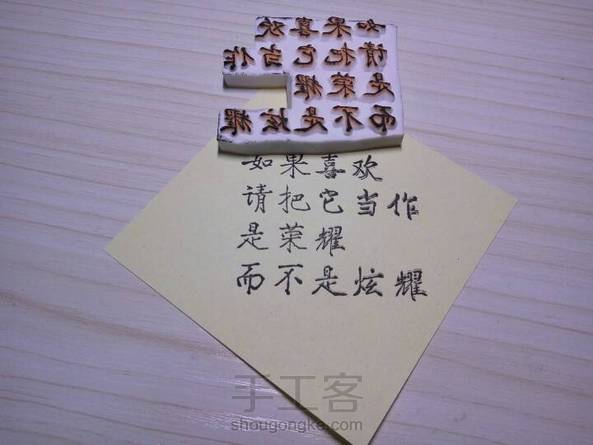 如果喜欢
请把它当作
是荣耀
而不是炫耀
如果喜欢
请把它当作
是荣耀
而不是炫耀
手工客
shougongke.com